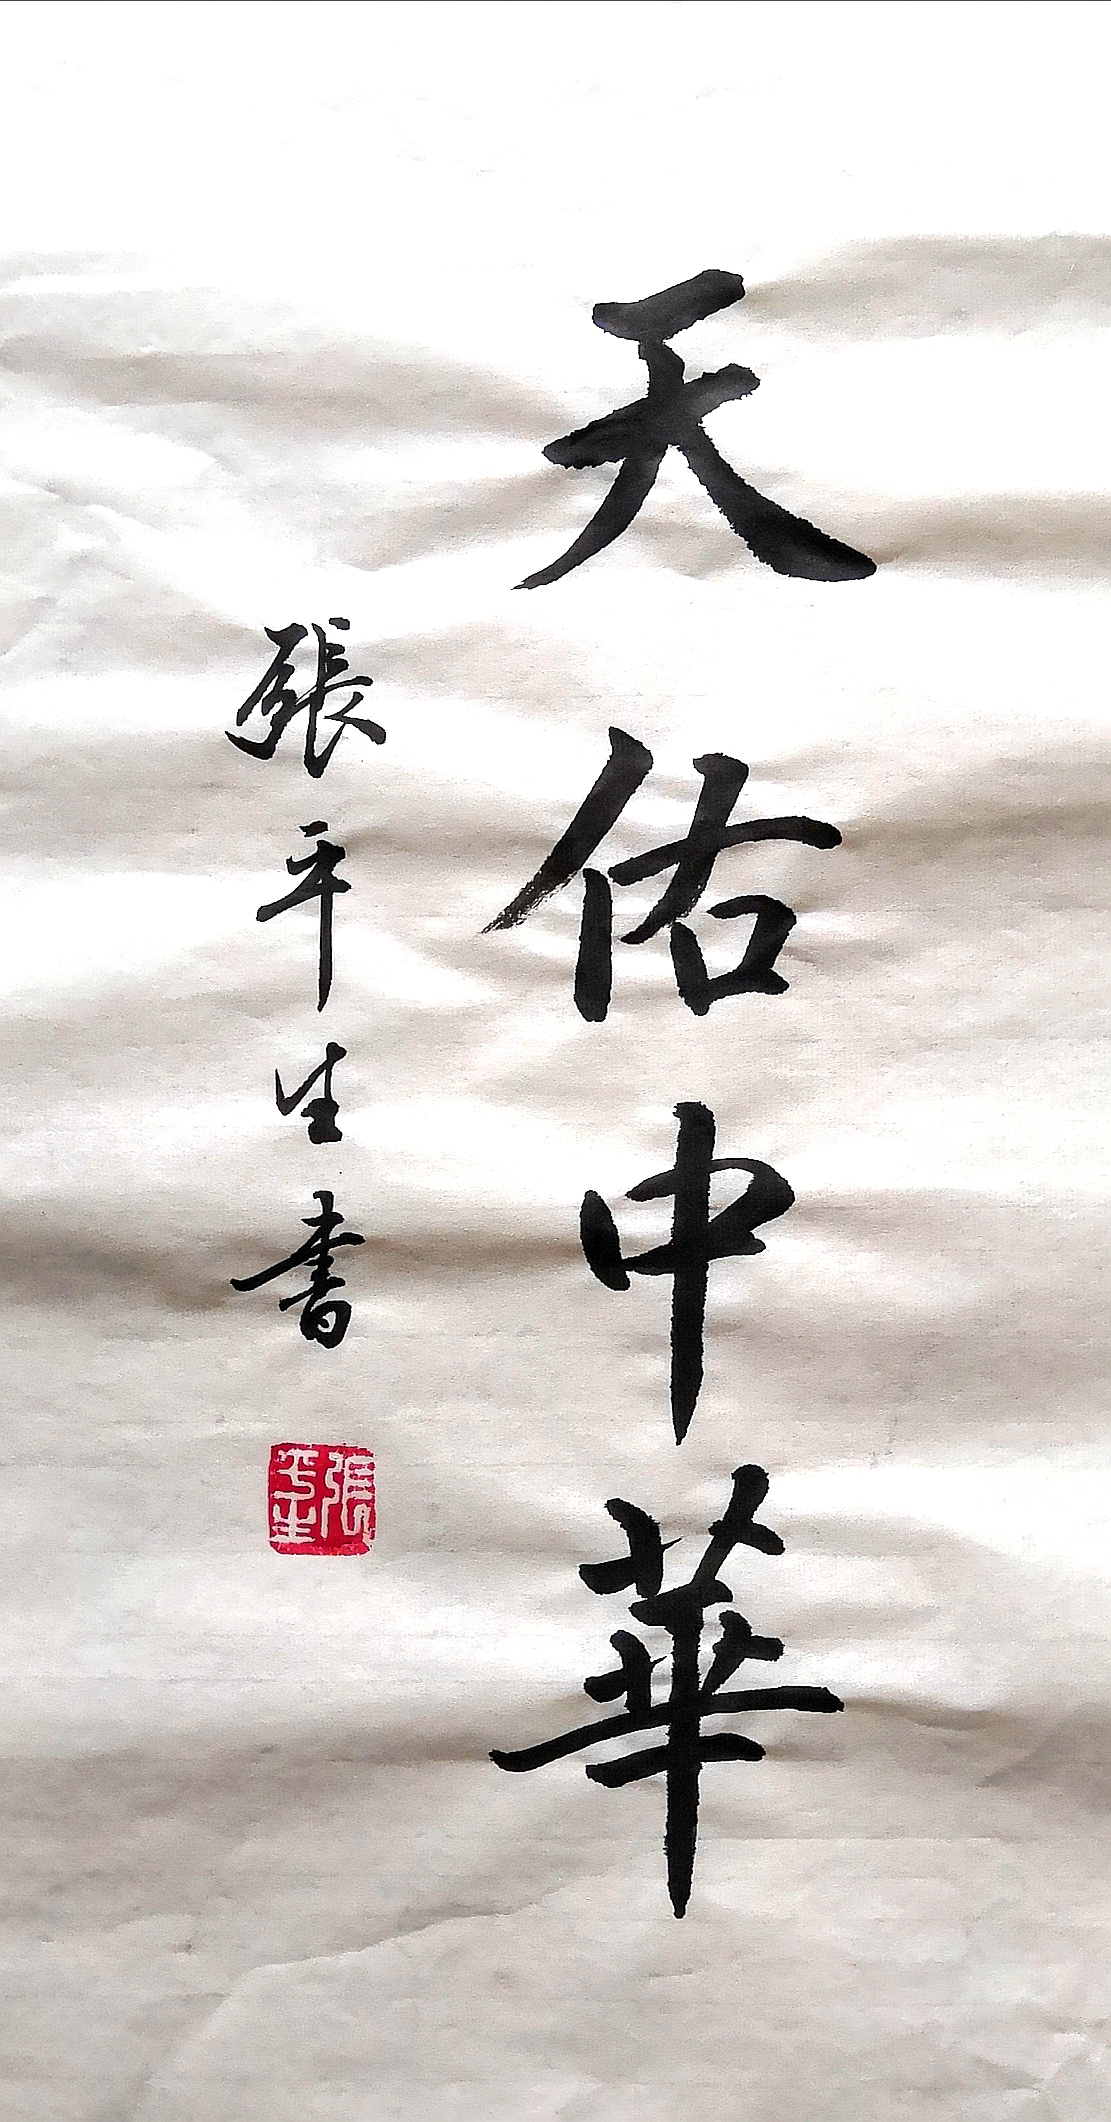 天佑中華
張平生書
張平生